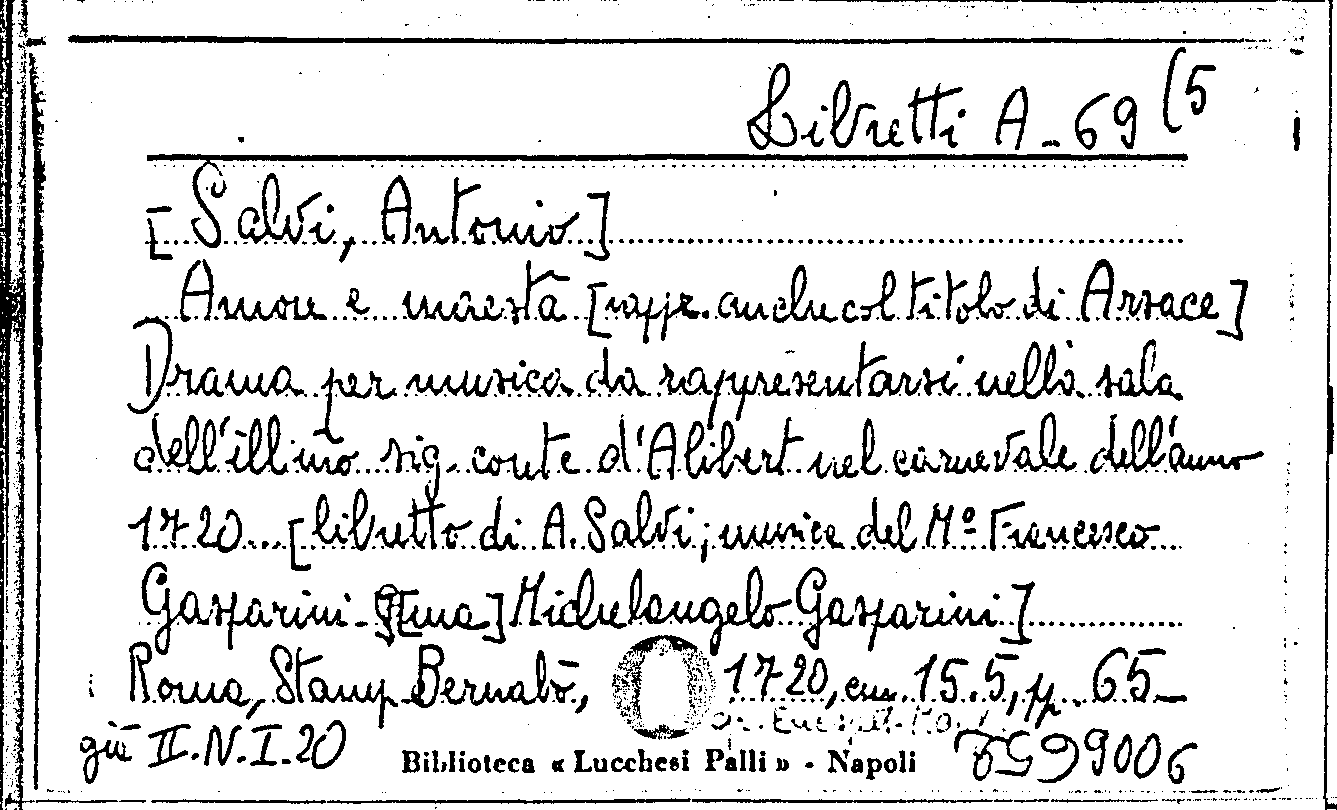 Libretti A-69 (5
[Salvi, Antonio]
Amore e maestà [rappr. anche col titolo di Arsace]
Drama per musica da rappresentarsi nella sala
dell'ill.mo sig. conte d'Alibert nel carnevale dell'anno
1720... [libretto di A. Salvi; musica del M° Francesco
Gasparini - [ma] Michelangelo Gasparini]
Roma, Stamp. Bernabò, 1720, cm. 15.5, pp. 65-
già II.N.I.20
Biblioteca « Lucchesi Palli » - Napoli